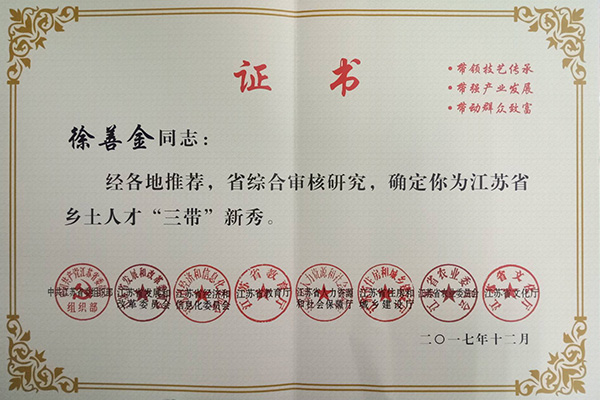 证 书
·带领技艺传承
·带强产业发展
·带动群众致富
徐善金同志：
经各地推荐，省综合审核研究，确定你为江苏省
乡土人才“三带”新秀。
中共江苏省委组织部
江苏省发展和
改革委员会
江苏省经济和
信息化委员会
江苏省教育厅
江苏省人力资源
和社会保障厅
江苏省住房和
城乡建设厅
江苏省农业委员会
江苏省文化厅
二〇一七年十二月